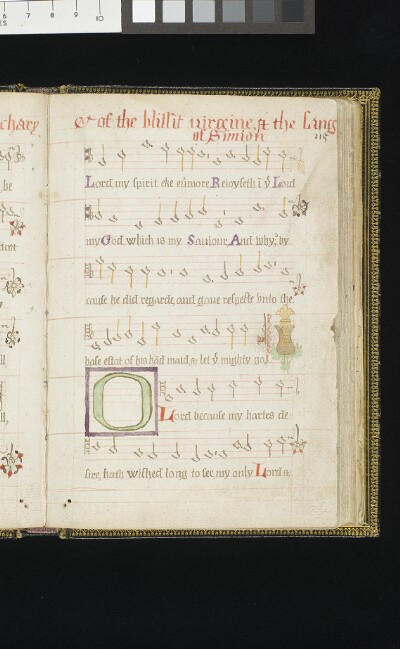 & of the blissit virgine, & the sang
of Simion
115
Lord, my spirit eke evmore, Reioyseth ī yͤ Lord
my God, which is my Saviour, And why, by
cause he did regarde, and gave respecte vnto the
base estat of his hād maid, & let yͤ mighty go,
O Lord because my hartes de
sire, hath wished long to see, my only Lord &